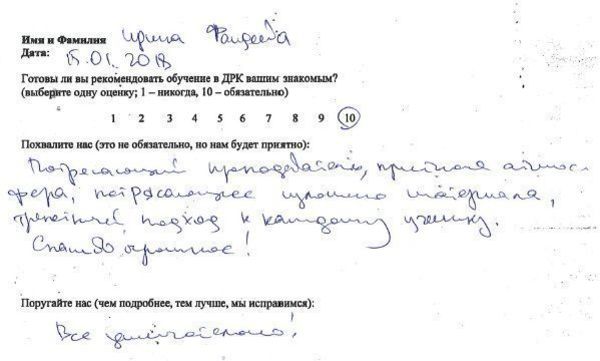 Имя и Фамилия Ирина Фандеева
Дата: 15.01.2018
Готовы ли вы рекомендовать обучение в ДРК вашим знакомым?
(выберите одну оценку; 1 – никогда, 10 – обязательно)
1 2 3 4 5 6 7 8 9 10
Похвалите нас (это не обязательно, но нам будет приятно):
Потрясающий преподаватель, приятная атмос-
фера, потрясающее материала,
трепетный подход к каждому ученику.
Спасибо огромное!
Поругайте нас (чем подробнее, тем лучше, мы исправимся):
Все замечательно!